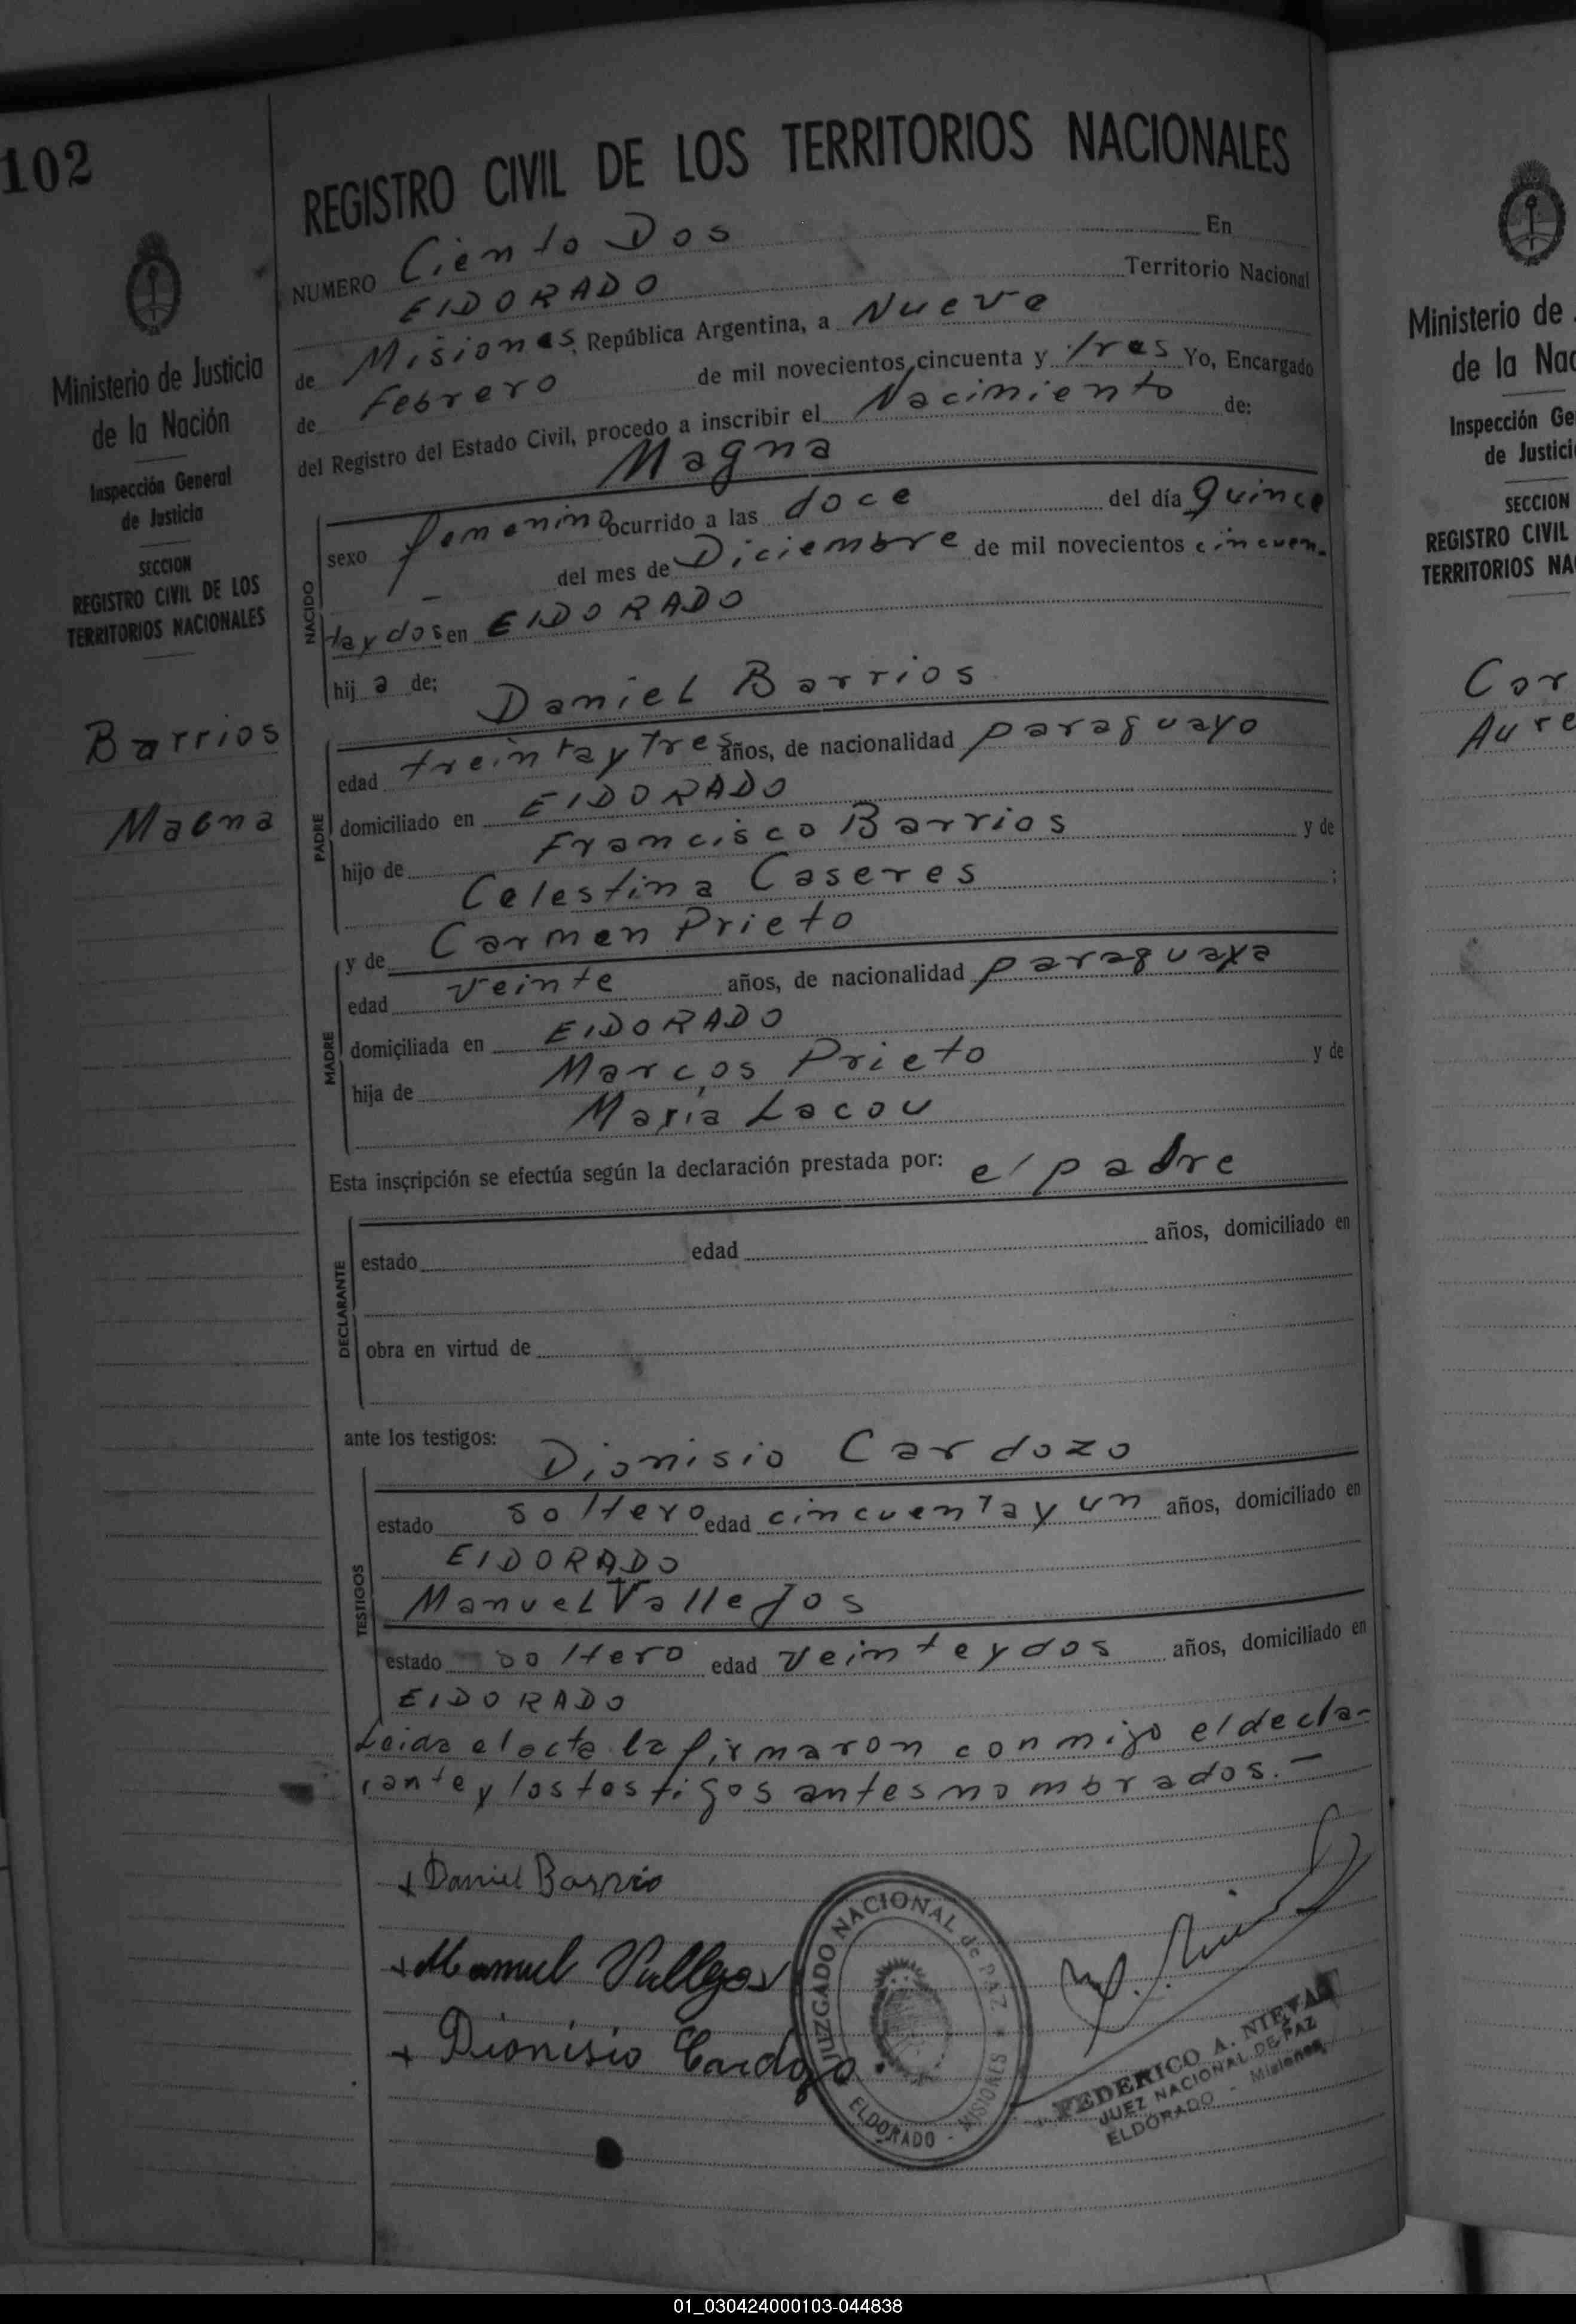 102
REGISTRO CIVIL DE LOS TERRITORIOS NACIONALES
NUMERO Ciento Dos En
ElDORADO Territorio Nacional
de Misiones, República Argentina, a Nueve
de febrero de mil novecientos cincuenta y tres Yo, Encargado
del Registro del Estado Civil, procedo a inscribir el Nacimiento de:
Magna
NACIDO
sexo femenino ocurrido a las doce del día quince
del mes de Diciembre de mil novecientos cincuen-
ta y dos en ElDORADO
hij a de:
Daniel Barrios
PADRE
edad treinta y tres años, de nacionalidad paraguayo
domiciliado en ElDORADO
hijo de Francisco Barrios y de
Celestina Caseres ;
y de Carmen Prieto
MADRE
edad veinte años, de nacionalidad paraguaya
domiciliada en ElDORADO
hija de Marcos Prieto y de
María Lacou
Esta inscripción se efectúa según la declaración prestada por: el padre
DECLARANTE
estado edad años, domiciliado en
obra en virtud de
ante los testigos:
Dionisio Cardozo
TESTIGOS
estado soltero edad cincuenta y un años, domiciliado en
ElDORADO
Manuel Vallejos
estado soltero edad veinte y dos años, domiciliado en
ElDORADO
Leida el acta la firmaron conmigo el decla-
rante y los testigos antes nombrados.—
+ Daniel Barrio
+ Manuel Vallejos
+ Dionisio Cardozo.
JUZGADO NACIONAL de PAZ
ELDORADO - MISIONES
FEDERICO A. NIEVAS
JUEZ NACIONAL DE PAZ
ELDORADO - Misiones
Ministerio de Justicia
de la Nación
Inspección General
de Justicia
SECCION
REGISTRO CIVIL DE LOS
TERRITORIOS NACIONALES
Barrios
Magna
Ministerio de
de la Nac
Inspección Ge
de Justici
SECCION
REGISTRO CIVIL
TERRITORIOS NA
Car
Aure
01_030424000103-044838